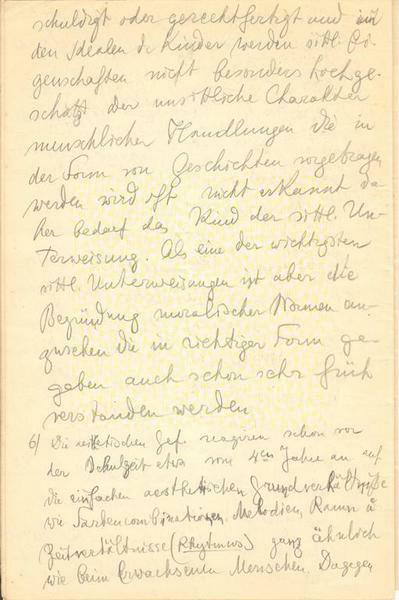 schuldigt oder gerechtfertigt und in
den Idealen d. Kinder werden sittl. Ei-
genschaften nicht besonders hochge-
schätzt. Der unsittliche Charakter
menschlicher Handlungen die in
der Form von Geschichten vorgetragen
werden wird oft nicht erkannt da-
her bedarf das Kind der sittl. Un-
terweisung. Als eine der wichtigsten
sittl. Unterweisungen ist aber die
Begründung moralischer Normen an-
zusehen die in richtiger Form ge-
geben auch schon sehr früh
verstanden werden
6/ Die aesthetischen Gef. reagiren schon vor
der Schulzeit etwa vom 4ten Jahre an auf
die einfachen aesthetischen Grundverhältniße
wie Farbencombinationen, Melodien, Raum u
Zeitverhältnisse (Rhytmus) ganz ähnlich
wie beim Erwachsenen Menschen. Dagegen